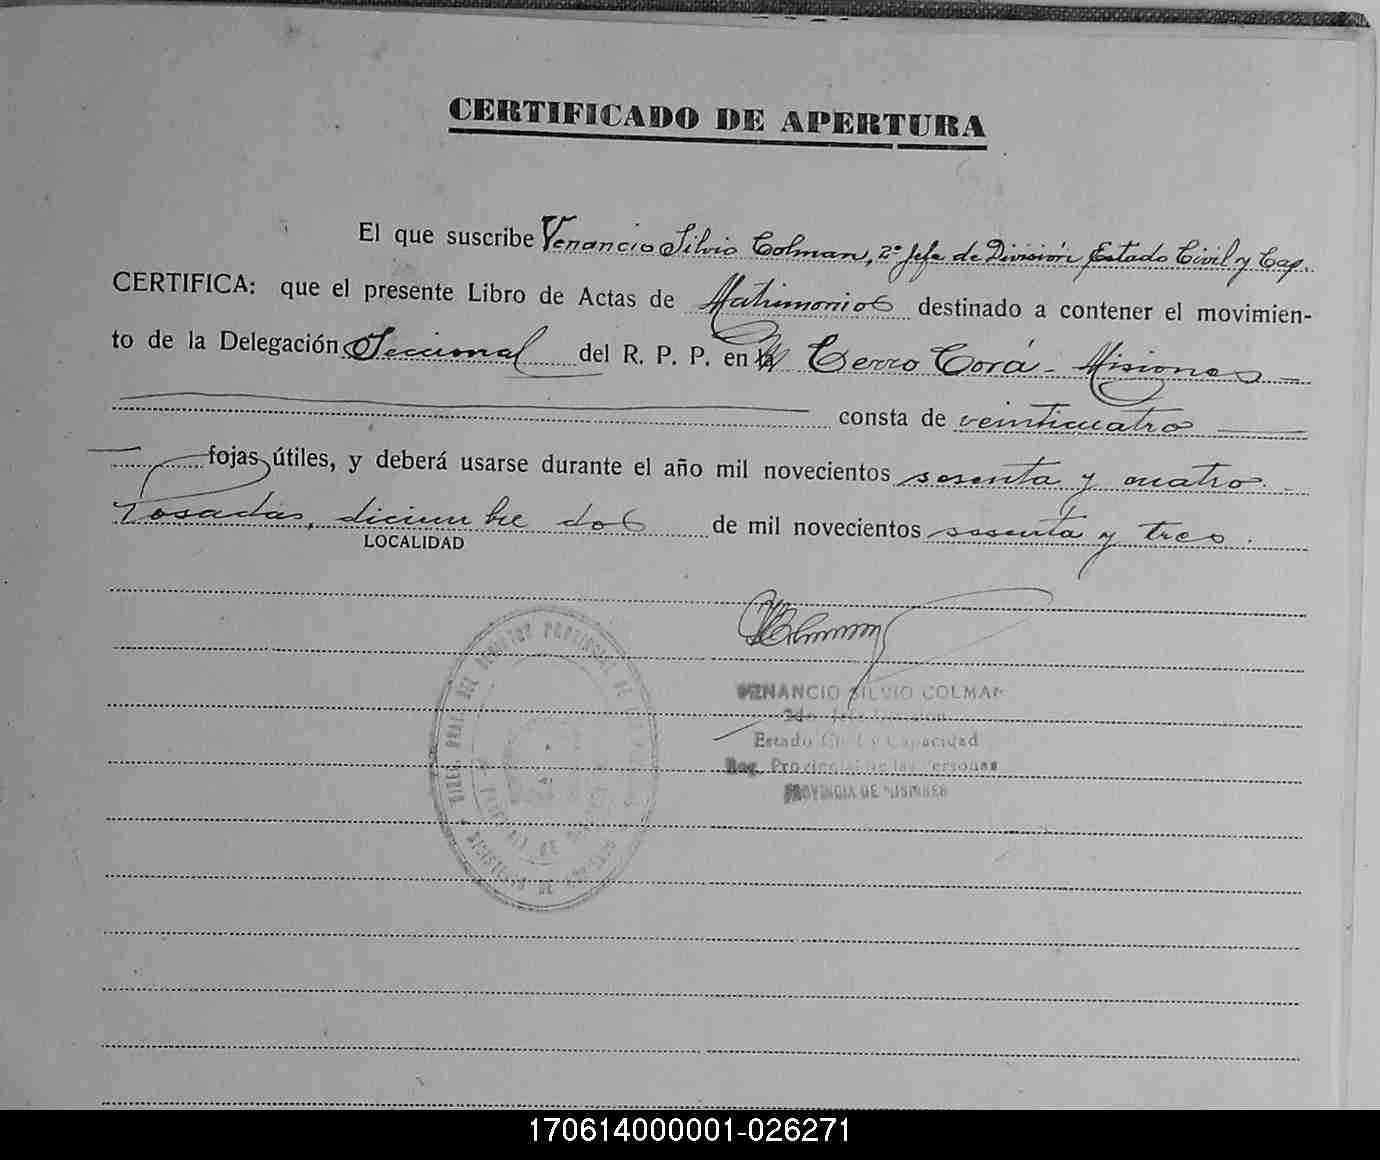 CERTIFICADO DE APERTURA
El que suscribe Venancio Silvio Colman, 2º Jefe de División Estado Civil y Cap.
CERTIFICA: que el presente Libro de Actas de Matrimonios destinado a contener el movimien-
to de la Delegación Seccional del R. P. P. en Cerro Corá - Misiones
consta de veinticuatro
fojas útiles, y deberá usarse durante el año mil novecientos sesenta y cuatro.
Posadas, diciembre dos de mil novecientos sesenta y tres.
LOCALIDAD
VENANCIO SILVIO COLMAN
2do. Jefe División
Estado Civil y Capacidad
Reg. Provincial de las Personas
PROVINCIA DE MISIONES
DIREC. GRAL. DEL REGISTRO PROVINCIAL DE
MINISTERIO DE
170614000001-026271